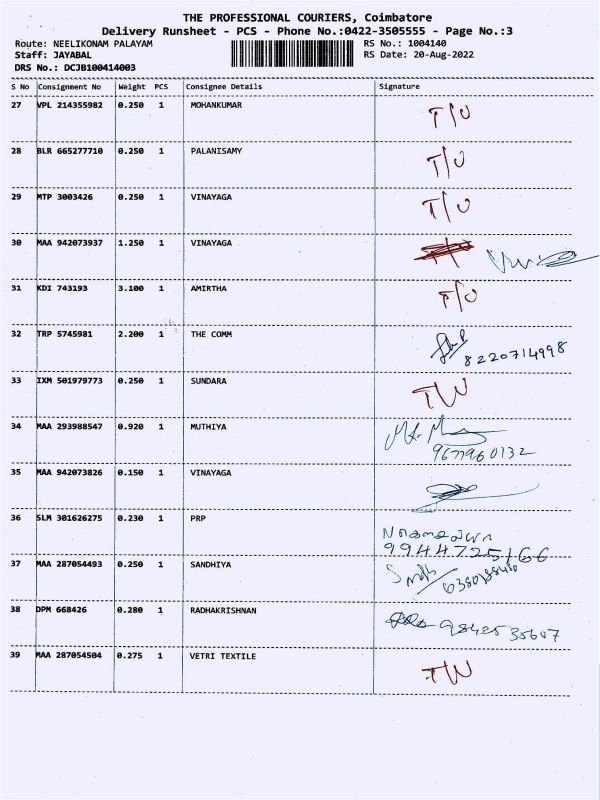 THE PROFESSIONAL COURIERS, Coimbatore
Delivery Runsheet - PCS - Phone No.:0422-3505555 - Page No.:3
Route: NEELIKONAM PALAYAM RS No.: 1004140
Staff: JAYABAL RS Date: 20-Aug-2022
DRS No.: DCJB100414003
S No Consignment No Weight PCS Consignee Details Signature
27 VPL 214355982 0.250 1 MOHANKUMAR T/U
28 BLR 665277710 0.250 1 PALANISAMY T/U
29 MTP 3003426 0.250 1 VINAYAGA T/U
30 MAA 942073937 1.250 1 VINAYAGA
31 KDI 743193 3.100 1 AMIRTHA T/U
32 TRP 5745981 2.200 1 THE COMM
8220714998
33 IXM 501979773 0.250 1 SUNDARA
34 MAA 293988547 0.920 1 MUTHIYA
35 MAA 942073826 0.150 1 VINAYAGA
36 SLM 301626275 0.230 1 PRP
9944725166
37 MAA 287054493 0.250 1 SANDHIYA
38 DPM 668426 0.280 1 RADHAKRISHNAN 9842535607
39 MAA 287054504 0.275 1 VETRI TEXTILE